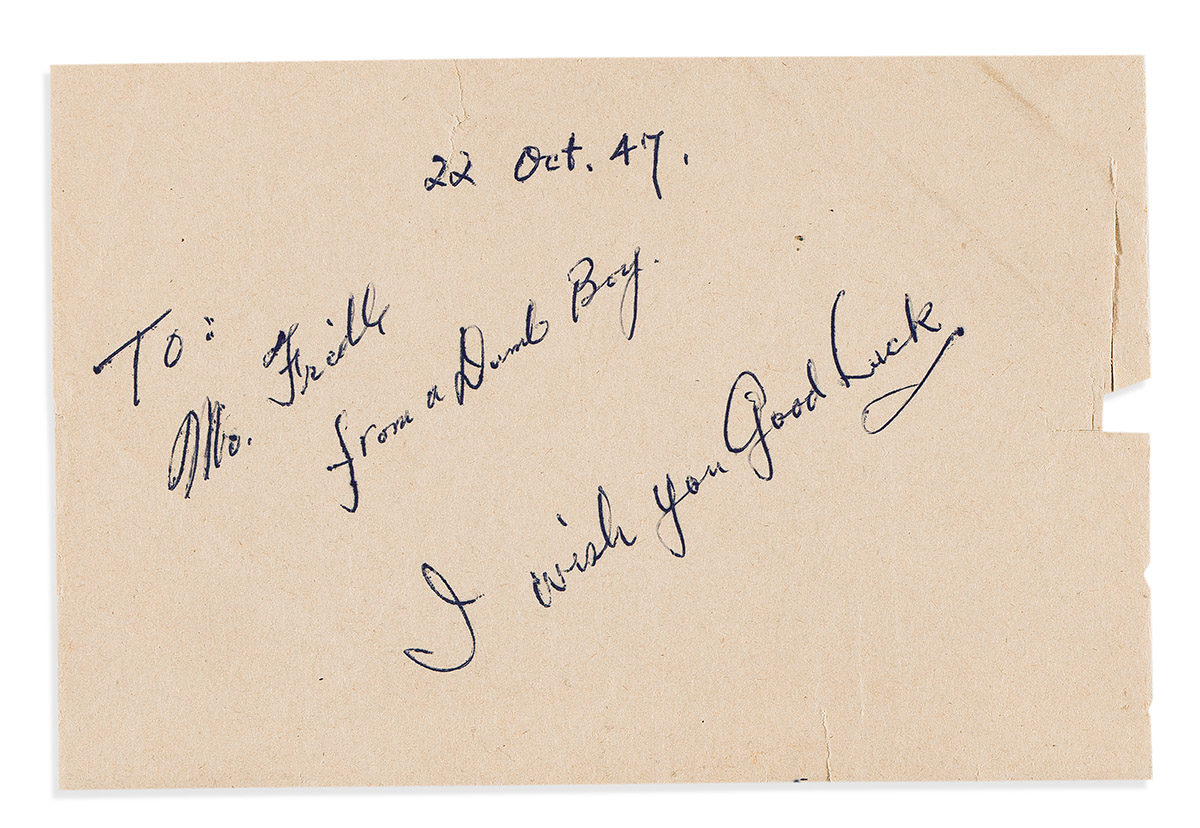 22 Oct. 47.
To:
Mr. Fridll
from a Dumb Boy.
I wish you Good Luck